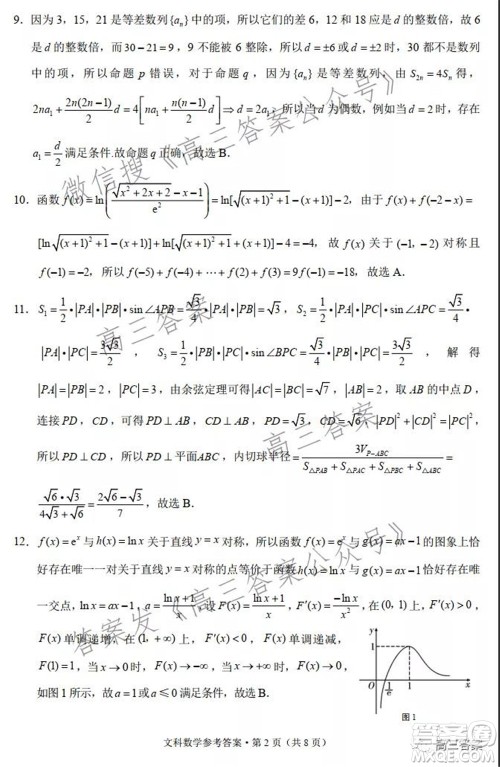 9. 因为 3，15，21 是等差数列{aₙ}中的项，所以它们的差 6，12 和 18 应是 d 的整数倍，故 6
是 d 的整数倍，而30−21=9，9 不能被 6 整除，所以 d=±6 或 d=±2 时，30 都不是数列
中的项，所以命题 p 错误，对于命题 q，因为{aₙ}是等差数列，由 S₂ₙ=4Sₙ 得，
2na₁+2n(2n−1)/2 d=4[na₁+n(n−1)/2 d]⇒d=2a₁，所以当 d 为偶数，例如当 d=2 时，存在
a₁=d/2 满足条件.故命题 q 正确，故选 B．
10. 函数 f(x)=ln((√(x²+2x+2)−x−1)/e²)=ln[√((x+1)²+1)−(x+1)]−2，由于 f(x)+f(−2−x)=
[ln√((x+1)²+1)−(x+1)]+ln[√((x+1)²+1)+(x+1)]−4=−4，故 f(x) 关于 (−1，−2) 对称且
f(−1)=−2，所以 f(−5)+f(−4)+⋯+f(2)+f(3)=9f(−1)=−18，故选 A．
11. S₁=1/2•|PA|•|PB|•sin∠APB=√3/4•|PA|•|PB|=√3，S₂=1/2•|PA|•|PC|•sin∠APC=√3/4
•|PA|•|PC|=3√3/2，S₃=1/2•|PB|•|PC|•sin∠BPC=√3/4•|PB|•|PC|=3√3/2，解得
|PA|=|PB|=2，|PC|=3，由余弦定理可得|AC|=|BC|=√7，|AB|=2，取 AB 的中点 D，
连接 PD，CD，可得 PD⊥AB，CD⊥AB，PD=√3，CD=√6，|PD|²+|CD|²=|PC|²，
所以 PD⊥CD，所以 PD⊥平面ABC，内切球半径=3V_{P−ABC}/(S△PAB+S△PAC+S△PBC+S△ABC)=
√6•√3/(4√3+√6)=(2√6−√3)/7，故选 B．
12. f(x)=eˣ 与 h(x)=ln x 关于直线 y=x 对称，所以函数 f(x)=eˣ 与 g(x)=ax−1 的图象上恰
好存在唯一一对关于直线 y=x 对称的点等价于函数 h(x)=ln x 与 g(x)=ax−1 恰好存在唯
一交点，ln x=ax−1，a=(ln x+1)/x，设 F(x)=(ln x+1)/x，F′(x)=−ln x/x²，在 (0，1) 上，F′(x)>0，
F(x) 单调递增，在 (1，+∞) 上，F′(x)<0，F(x) 单调递减，
F(1)=1，当 x→0 时，F(x)→−∞，当 x→+∞ 时，F(x)→0，
如图 1 所示，故 a=1 或 a≤0 满足条件，故选 B．
y
1
O
1/e
1
x
图 1
文科数学参考答案·第 2 页（共 8 页）
微信搜《高三答案公众号》
高三答案
高三答案
答案发《高三答案公众号》
高三答案